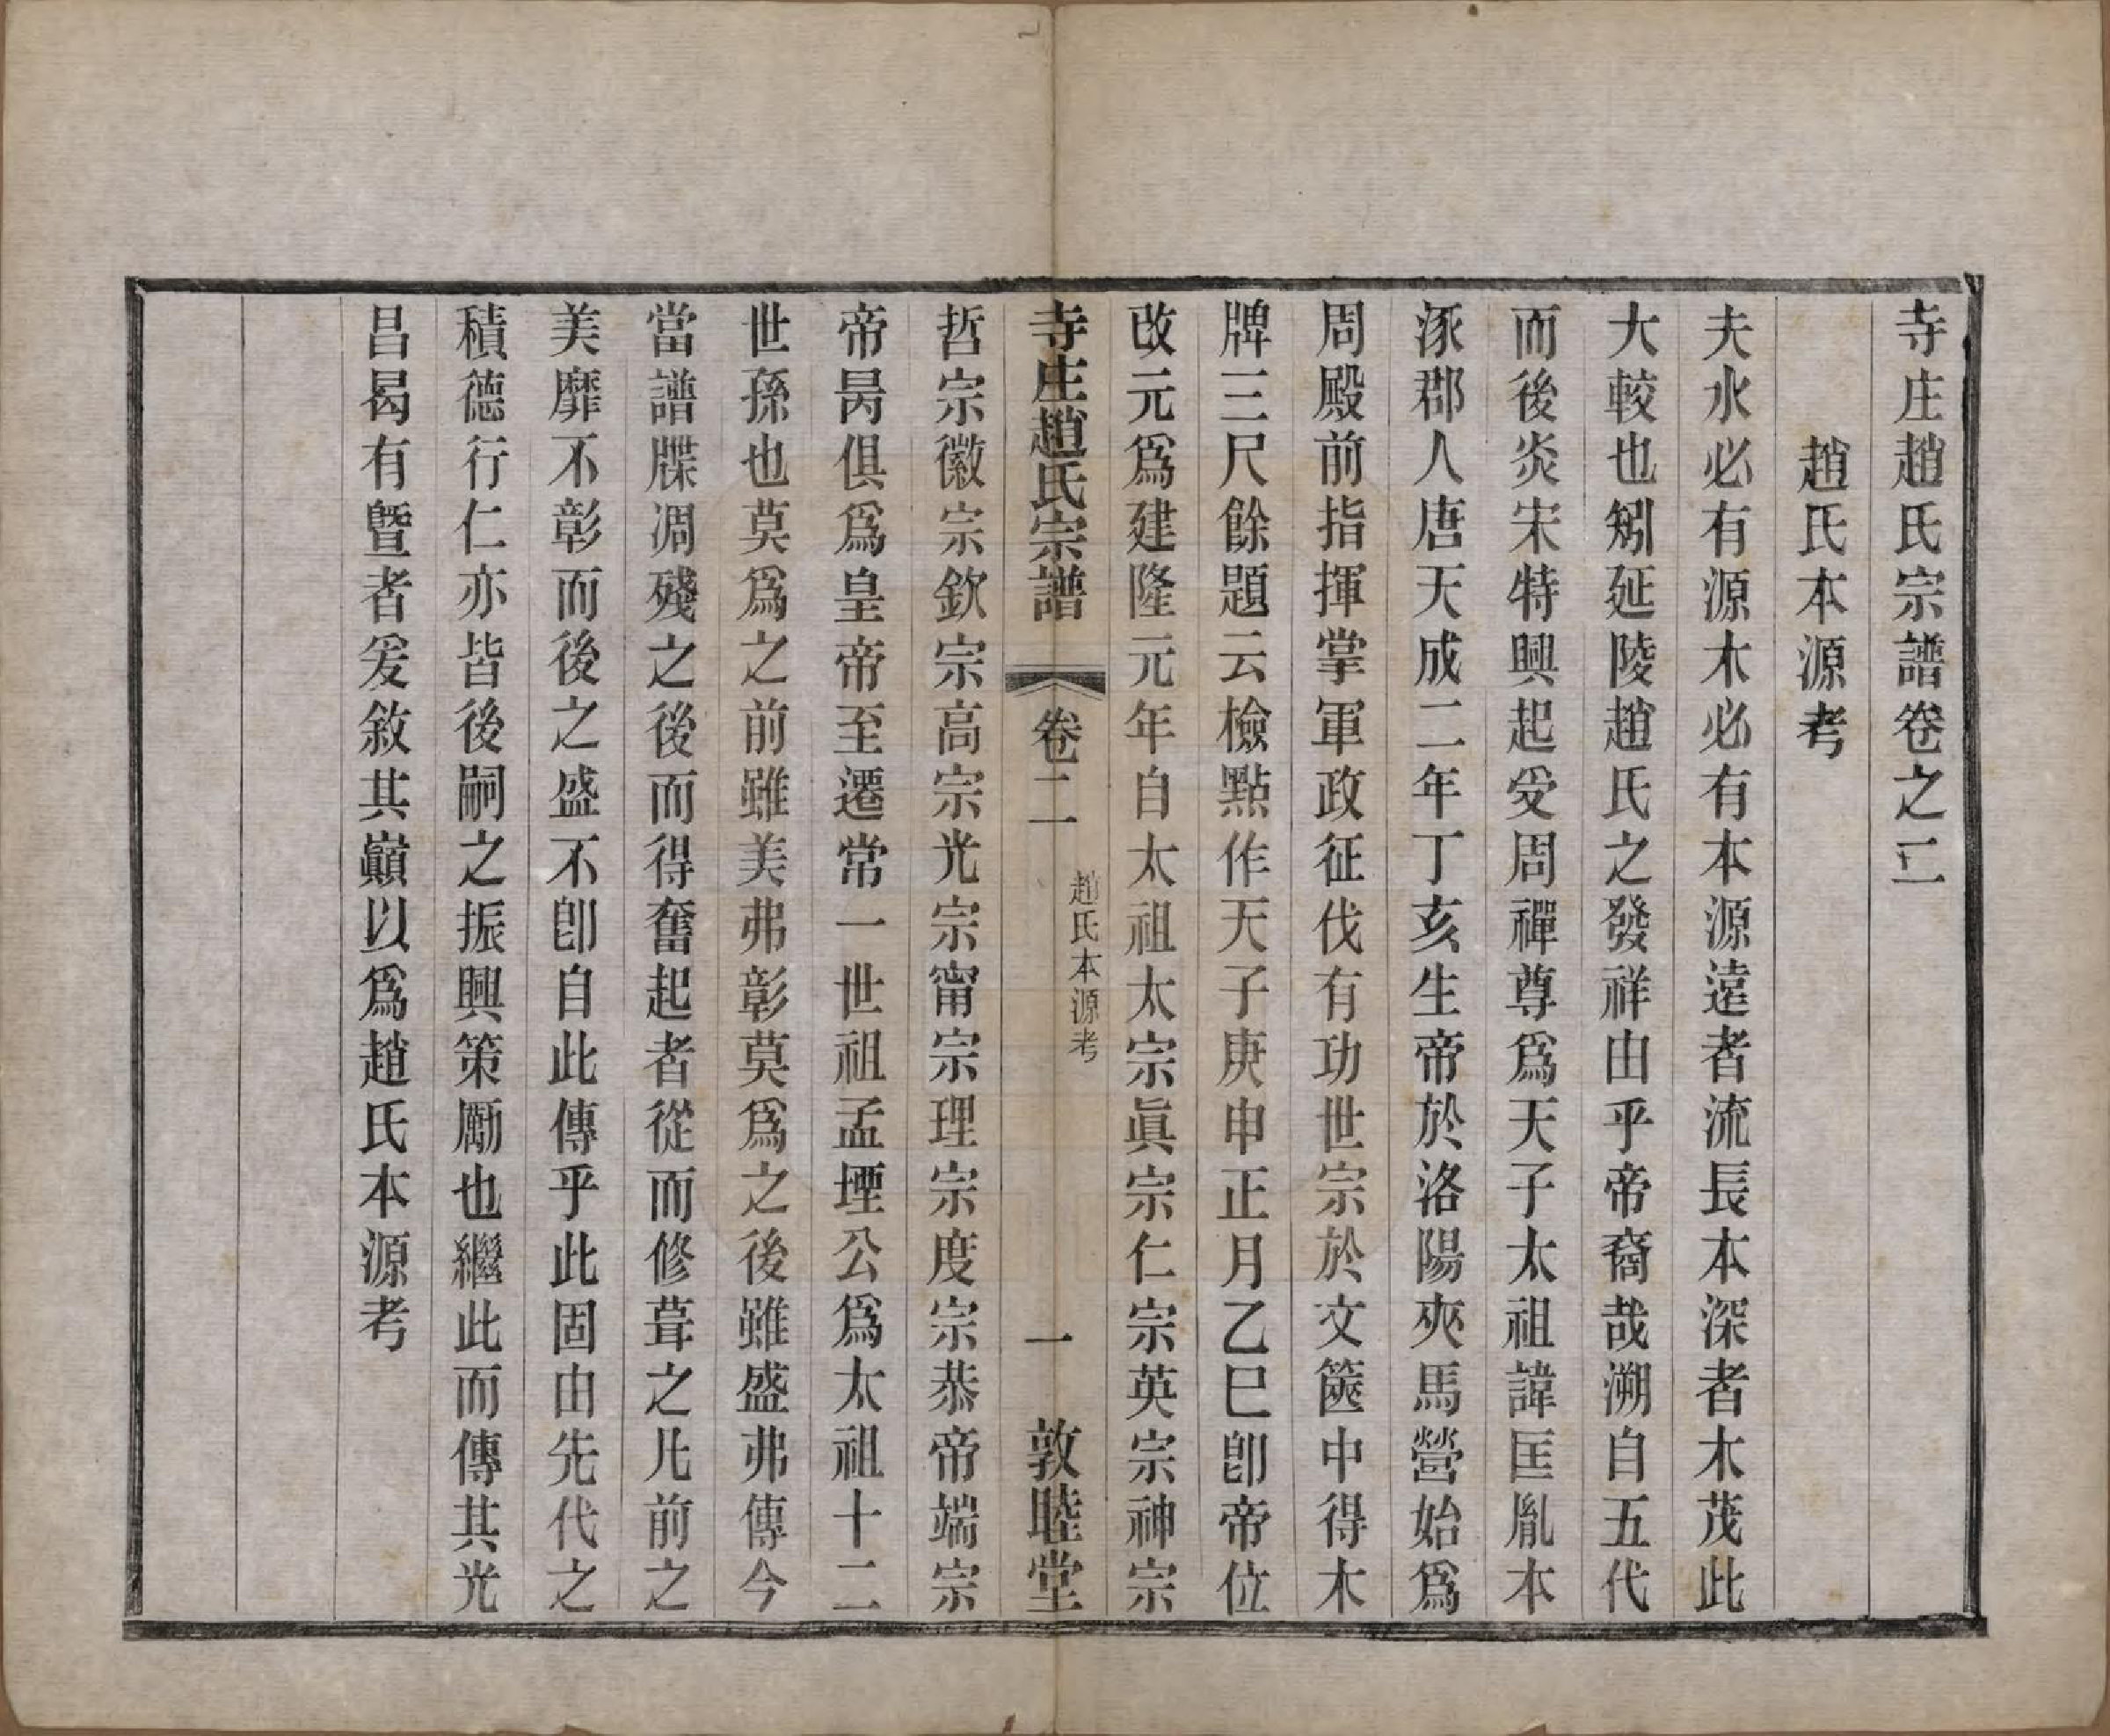 寺庄趙氏宗譜卷之二
趙氏本源考
夫水必有源木必有本源遠者流長本深者木茂此
大較也矧延陵趙氏之發祥由乎帝裔哉溯自五代
而後炎宋特興起受周禪尊爲天子太祖諱匡胤本
涿郡人唐天成二年丁亥生帝於洛陽夾馬營始爲
周殿前指揮掌軍政征伐有功世宗於文篋中得木
牌三尺餘題云檢點作天子庚申正月乙巳卽帝位
改元爲建隆元年自太祖太宗眞宗仁宗英宗神宗
寺庄趙氏宗譜
卷二
趙氏本源考
一
敦睦堂
哲宗徽宗欽宗高宗光宗甯宗理宗度宗恭帝端宗
帝昺俱爲皇帝至遷常一世祖孟堙公爲太祖十二
世孫也莫爲之前雖美弗彰莫爲之後雖盛弗傳今
當譜牒凋殘之後而得奮起者從而修葺之凡前之
美靡不彰而後之盛不卽自此傳乎此固由先代之
積德行仁亦皆後嗣之振興策勵也繼此而傳其光
昌曷有曁者爰敘其巔以爲趙氏本源考